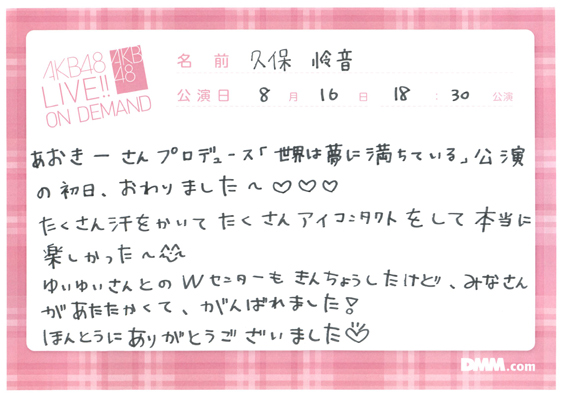 AKB48
LIVE!!
ON DEMAND
AKB
48
名前 久保 怜音
公演日 8月16日 18:30 公演
あおきーさんプロデュース「世界は夢に満ちている」公演
の初日、おわりました〜♡♡♡
たくさん汗をかいてたくさんアイコンタクトをして本当に
楽しかった〜
ゆいゆいさんとのWセンターもきんちょうしたけど、みなさん
があたたかくて、がんばれました!
ほんとうにありがとうございました♡
DMM.com